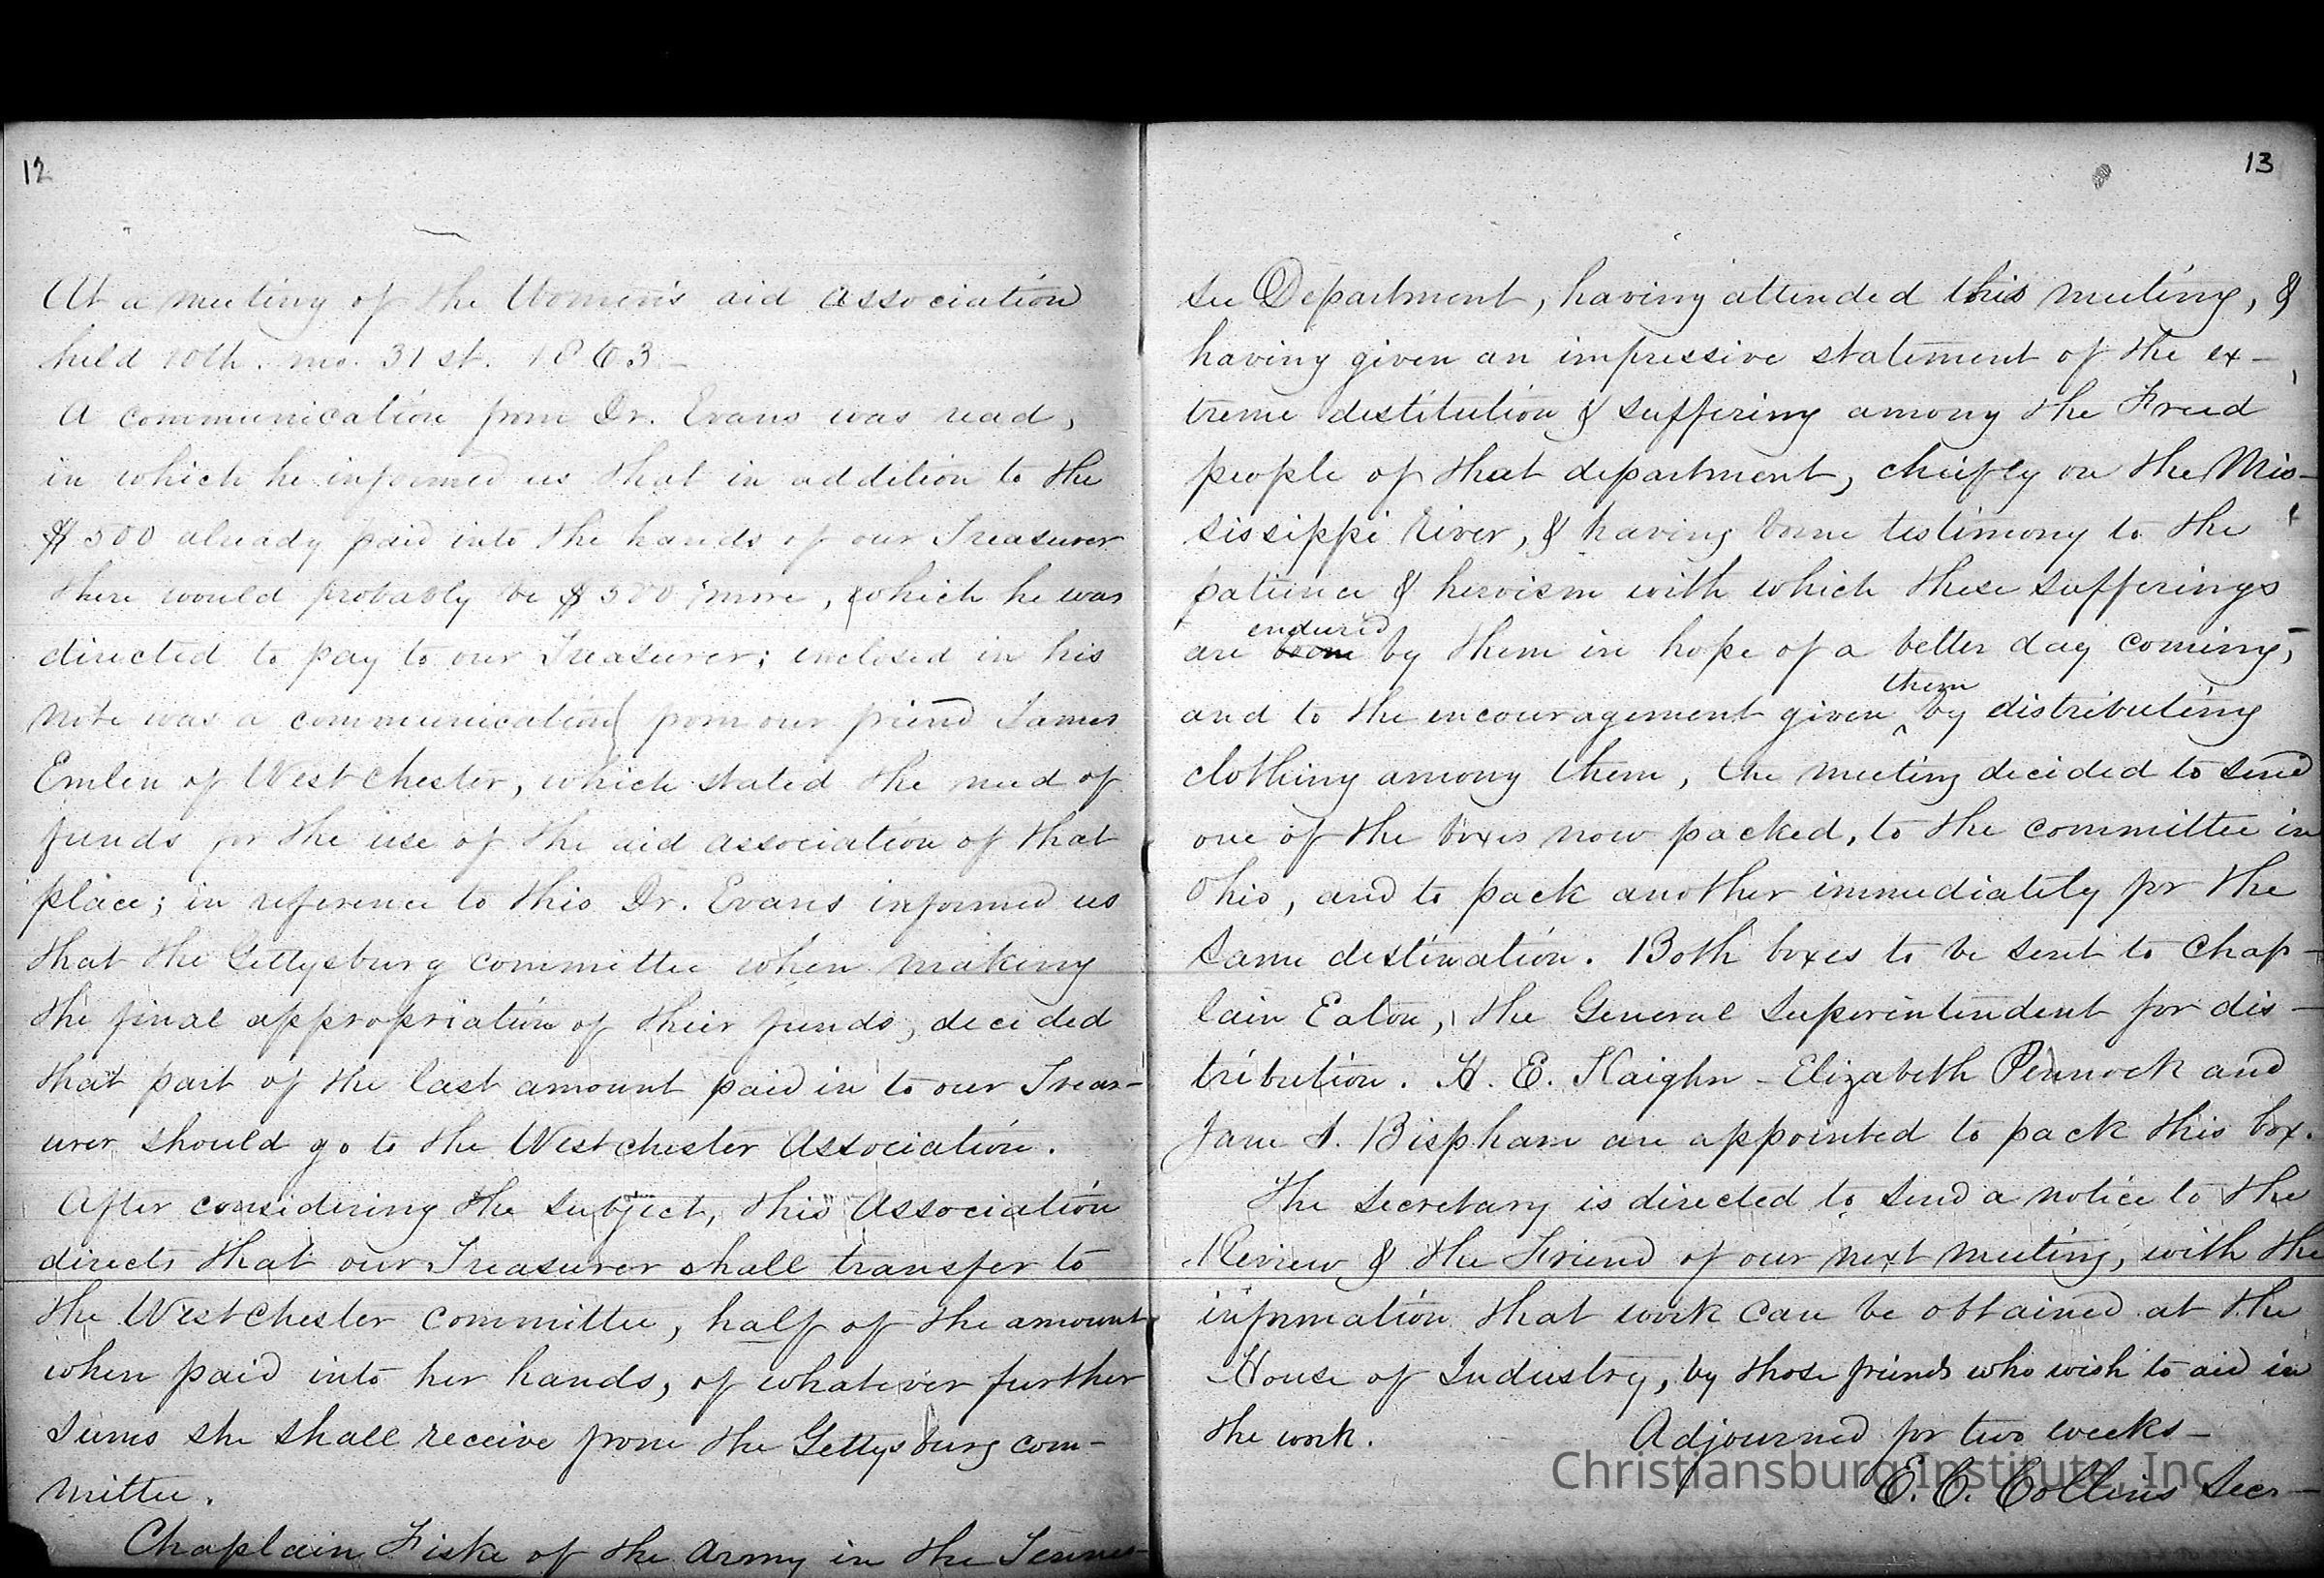 12
At a meeting of the Women's aid Association
held 10th. mo. 31st. 1863 –
A communication from Dr. Evans was read,
in which he informed us that in addition to the
$500 already paid into the hands of our Treasurer
there would probably be $500 more, which he was
directed to pay to our Treasurer; enclosed in his
note was a communication from our friend James
Emlen of West chester, which stated the need of
funds for the use of the aid association of that
place; in reference to this Dr. Evans informed us
that the Gettysburg committee when making
the final appropriation of their funds, decided
that part of the last amount paid in to our Treas-
urer should go to the West chester Association.
After considering the subject, this Association
directs that our Treasurer shall transfer to
the West chester committee, half of the amount
when paid into her hands, of whatever further
sums she shall receive from the Gettysburg com-
mittee.
Chaplain Fiske of the Army in the Tennes-
13
see Department, having attended this meeting, &
having given an impressive statement of the ex-
treme destitution & suffering among the Freed
people of that department, cheifly on the Mis-
sissippi River, & having borne testimony to the
patience & heroism with which these sufferings
endured
are borne by them in hope of a better day coming,
them
and to the encouragement given ‸ by distributing
clothing among them, the meeting decided to send
one of the boxes now packed, to the committee in
Ohio, and to pack another immediately for the
same destination. Both boxes to be sent to Chap-
lain Eaton, the General Superintendent for dis-
tribution. H. E. Kaighn - Elizabeth Pennock and
Jane S. Bispham are appointed to pack this box.
The Secretary is directed to send a notice to the
Review & the Friend of our next meeting, with the
information that work can be obtained at the
House of Industry, by those friends who wish to aid in
the work. Adjourned for two weeks –
E. C. Collins Secr –
Christiansburg Institute, Inc.